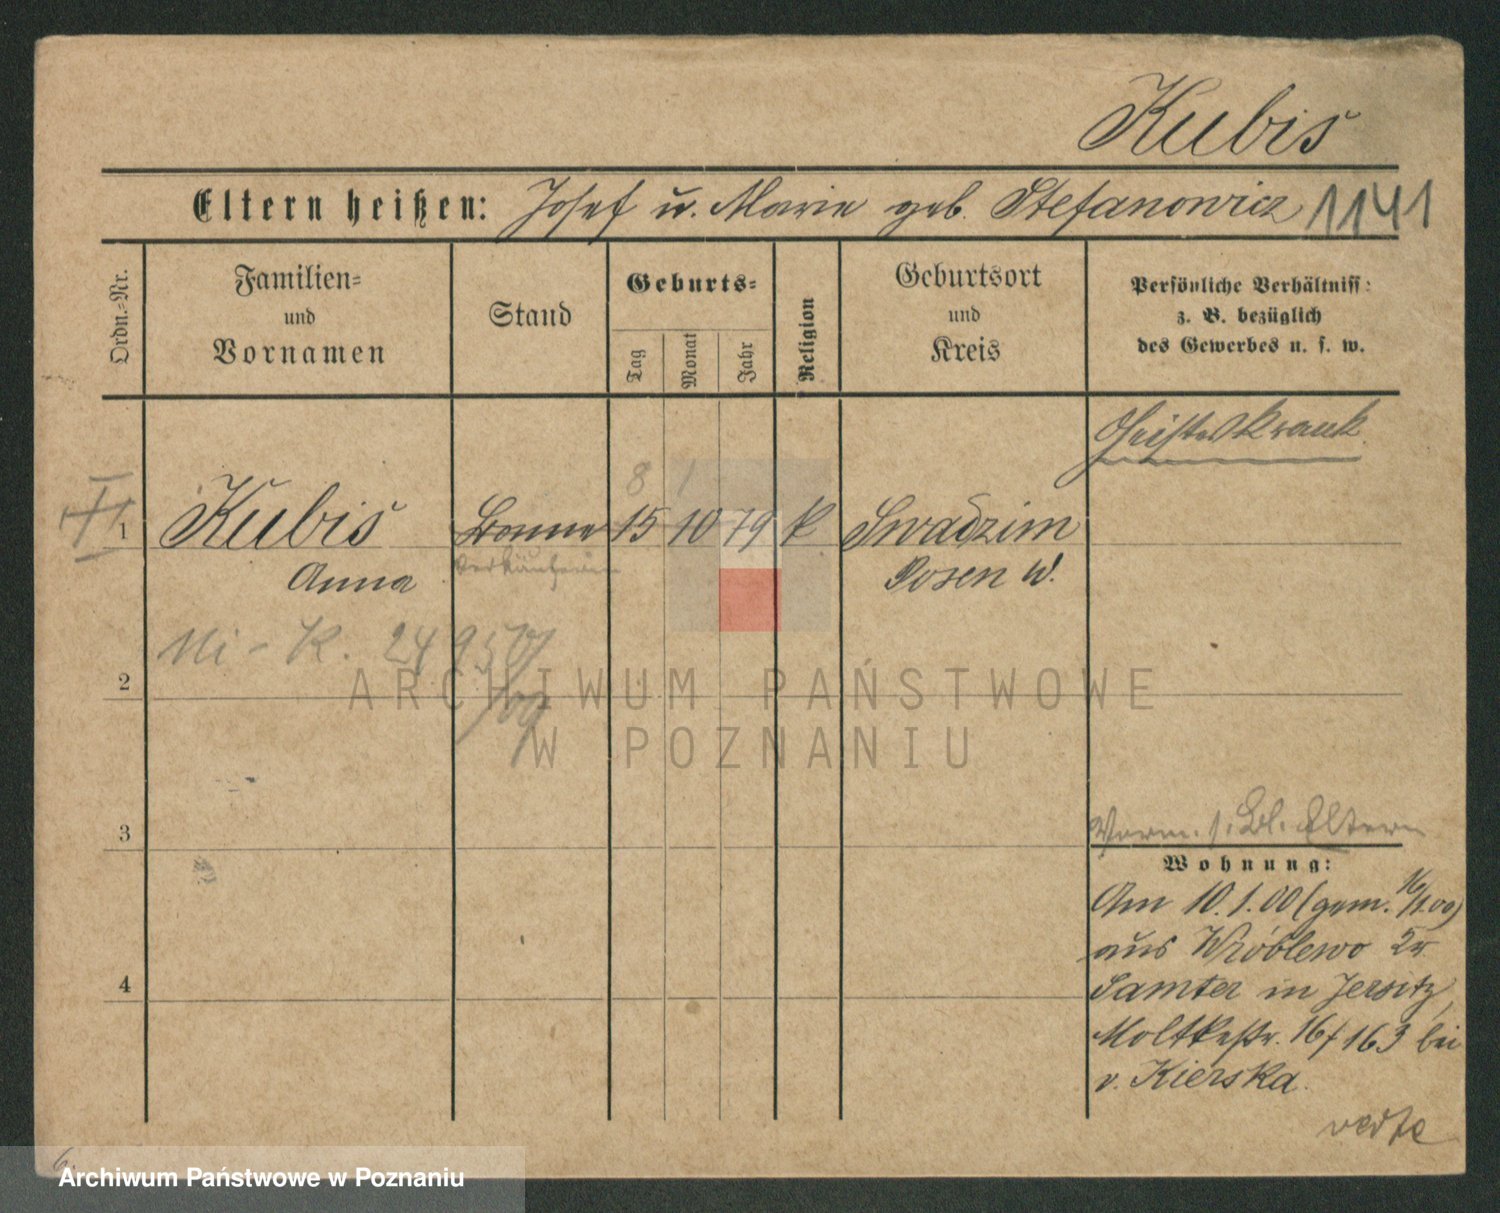 Kubis
Eltern heißen: Josef u. Marie geb. Stefanowicz 1141
Ordn.-Nr.
Familien-
und
Vornamen
Stand
Geburts-
Tag
Monat
Jahr
Religion
Geburtsort
und
Kreis
Persönliche Verhältniss:
z. B. bezüglich
des Gewerbes u. s. w.
Geisteskrank
8 1
II
1 Kubis Bonne 15 10 79 k Swadzim
Anna Verkäuferin Posen W.
2
3
4
Vorm. s. Bl. Eltern
Wohnung:
Am 10.1.00 (gem. 16/1.00)
aus Wróblewo Kr
Samter in Jersitz,
Moltkestr. 16/163 bei
v. Kierska.
verte
6.
ARCHIWUM PAŃSTWOWE
W POZNANIU
Archiwum Państwowe w Poznaniu